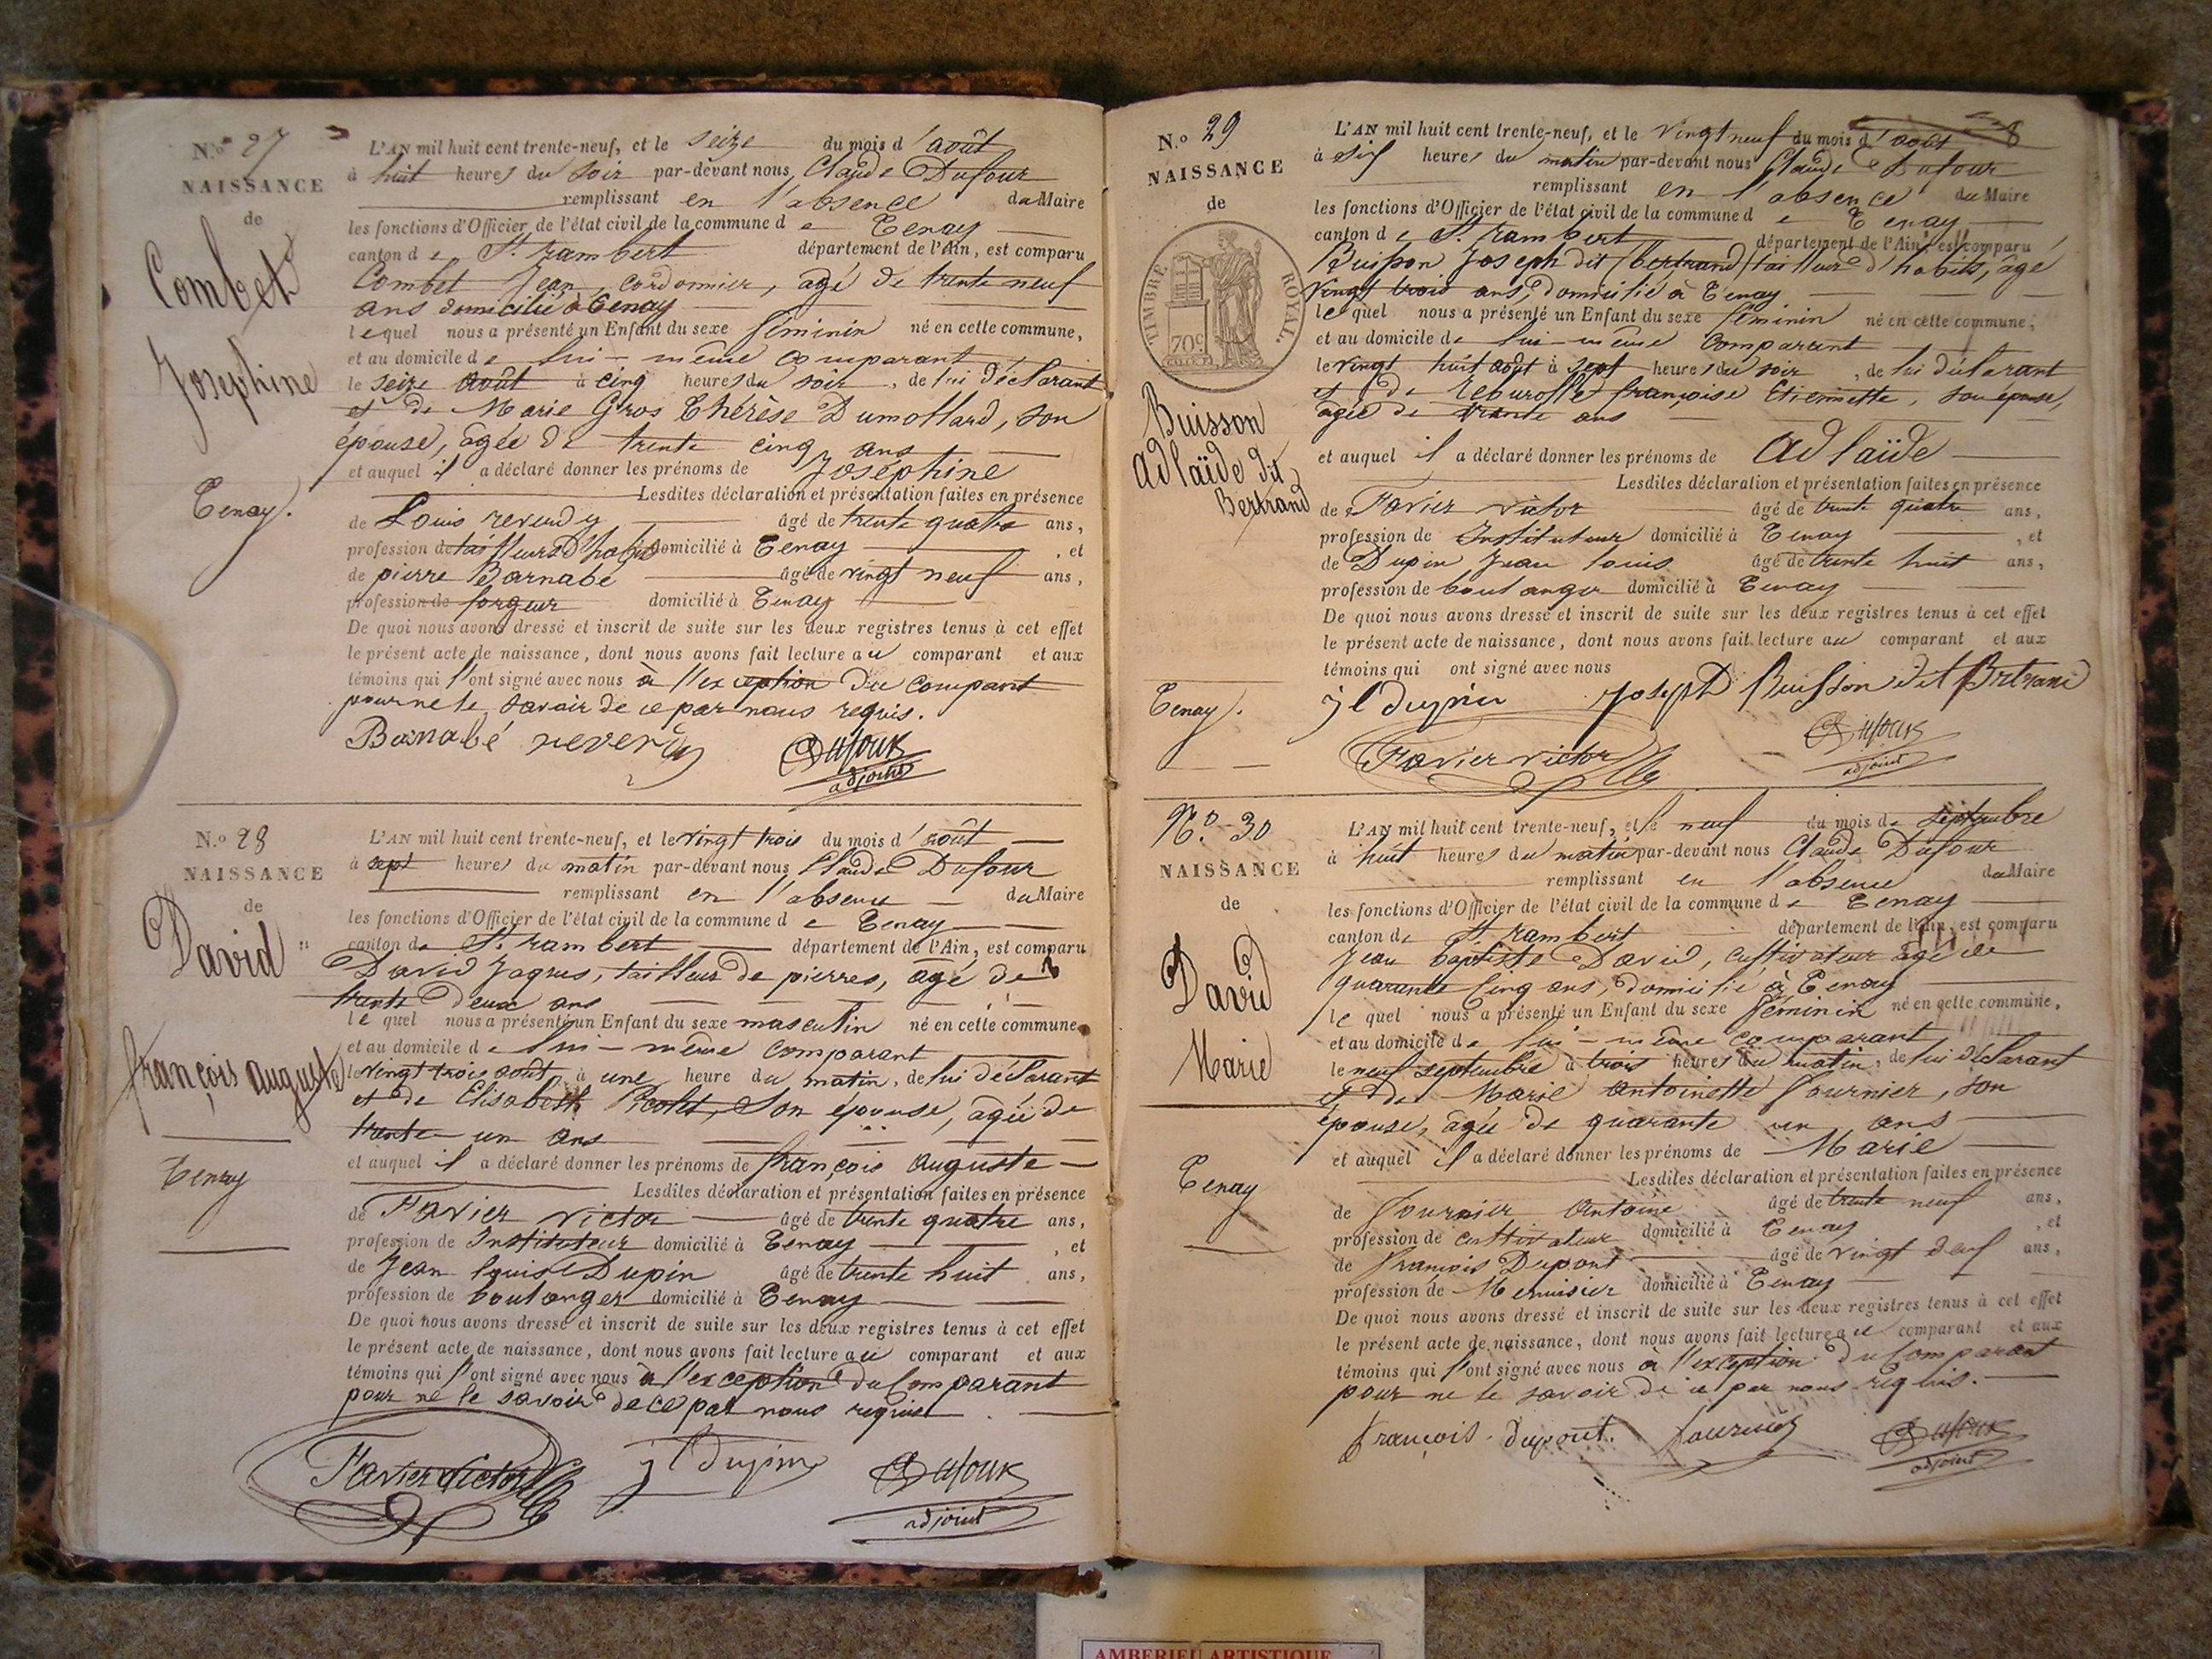 N.° 27
NAISSANCE
de
Combet
Joséphine
Tenay.
L'AN mil huit cent trente-neuf, et le seize du mois d'août
à huit heures du soir par-devant nous Claude Dufour
remplissant en l'absence du Maire
les fonctions d'Officier de l'état civil de la commune de Tenay
canton de St. rambert département de l'Ain, est comparu
Combet Jean, cordonnier, agé de trente neuf
ans domicilié à Tenay
lequel nous a présenté un Enfant du sexe féminin né en cette commune,
et au domicile de lui-même comparant
le seize août à cinq heures du soir, de lui déclarant
et de Marie Gros Thérèse Dumollard, son
épouse, âgée de trente cinq ans
et auquel il a déclaré donner les prénoms de Joséphine
Lesdites déclaration et présentation faites en présence
de Louis reverdy âgé de trente quatre ans,
profession de tailleurs d'habits domicilié à Tenay, et
de pierre Barnabé âgé de vingt neuf ans,
profession de forgeur domicilié à Tenay
De quoi nous avons dressé et inscrit de suite sur les deux registres tenus à cet effet
le présent acte de naissance, dont nous avons fait lecture au comparant et aux
témoins qui l'ont signé avec nous à l'exception du compant
pour ne le savoir de ce par nous requis.
Barnabé reverdy Dufour
adjoint
N.° 28
NAISSANCE
de
David
françois auguste
Tenay
L'AN mil huit cent trente-neuf, et le vingt trois du mois d'août
à sept heures du matin par-devant nous Claude Dufour
remplissant en l'absence du Maire
les fonctions d'Officier de l'état civil de la commune de Tenay
canton de St. rambert département de l'Ain, est comparu
David Jaques, tailleur de pierres, âgé de
trente deux ans
le quel nous a présenté un Enfant du sexe masculin né en cette commune
et au domicile de lui-même comparant
le vingt trois août à une heure du matin, de lui déclarant
et de Elisabeth Picolet, son épouse, agée de
trente un ans
et auquel il a déclaré donner les prénoms de françois auguste
Lesdites déclaration et présentation faites en présence
de Favier victor âgé de trente quatre ans,
profession de Instituteur domicilié à Tenay, et
de Jean louis Dupin âgé de trente huit ans,
profession de boulanger domicilié à Tenay
De quoi nous avons dressé et inscrit de suite sur les deux registres tenus à cet effet
le présent acte de naissance, dont nous avons fait lecture au comparant et aux
témoins qui l'ont signé avec nous à l'exception du Comparant
pour ne le savoir de ce par nous requis
Favier Victor jl Dupin Dufour
adjoint
8
N.° 29
NAISSANCE
de
TIMBRE ROYAL.
70c
Buisson
Adlaïde dit
Bertrand
Tenay.
L'AN mil huit cent trente-neuf, et le vingt neuf du mois d'août
à six heures du matin par-devant nous Claude Dufour
remplissant en l'absence du Maire
les fonctions d'Officier de l'état civil de la commune de Tenay
canton de St. rambert département de l'Ain, est comparu
Buisson Joseph dit (bertrand) tailleur d'habits, âgé
vingt trois ans, domicilié à Tenay
le quel nous a présenté un Enfant du sexe féminin né en cette commune,
et au domicile de lui-même Comparant
le vingt huit août à sept heures du soir, de lui déclarant
et de françoise Etiennette, son épouse,
âgée de trente ans
et auquel il a déclaré donner les prénoms de Adlaïde
Lesdites déclaration et présentation faites en présence
de Favier victor âgé de trente quatre ans,
profession de Instituteur domicilié à Tenay, et
de Dupin Jean louis âgé de trente huit ans,
profession de boulanger domicilié à Tenay
De quoi nous avons dressé et inscrit de suite sur les deux registres tenus à cet effet
le présent acte de naissance, dont nous avons fait lecture au comparant et aux
témoins qui ont signé avec nous
jl dupin joseph Buisson dit Bertrand
Favier victor Dufour
adjoint
N.° 30
NAISSANCE
de
David
Marie
Tenay
L'AN mil huit cent trente-neuf, et le neuf du mois de septembre
à huit heures du matin par-devant nous Claude Dufour
remplissant en l'absence du Maire
les fonctions d'Officier de l'état civil de la commune de Tenay
canton de St. rambert département de l'Ain, est comparu
Jean baptiste David, cultivateur âgé de
quarante cinq ans, domicilié à Tenay
le quel nous a présenté un Enfant du sexe féminin né en cette commune,
et au domicile de lui-même comparant
le neuf septembre à trois heures du matin, de lui déclarant
et de Marie antoinette fournier, son
épouse, âgée de quarante un ans
et auquel il a déclaré donner les prénoms de Marie
Lesdites déclaration et présentation faites en présence
de fournier Antoine âgé de trente neuf ans,
profession de cultivateur domicilié à Tenay, et
de françois Dupont âgé de vingt deux ans,
profession de Menuisier domicilié à Tenay
De quoi nous avons dressé et inscrit de suite sur les deux registres tenus à cet effet
le présent acte de naissance, dont nous avons fait lecture au comparant et aux
témoins qui l'ont signé avec nous à l'exception du Comparant
pour ne le savoir de ce par nous requis.
françois dupont. fournier Dufour
adjoint
AMBERIEU ARTISTIQUE